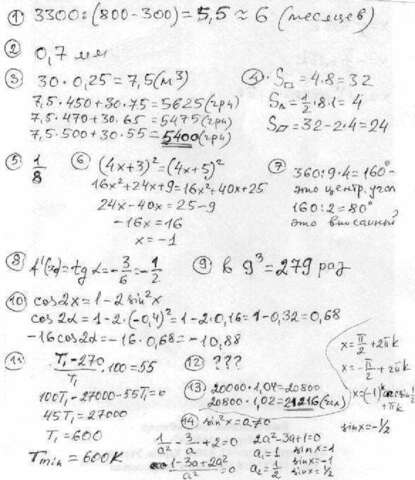 ① 3300:(800-300)=5,5≈6 (месяцев)
② 0,7 мм
③ 30·0,25=7,5(м³)
7,5·450+30·75=5625(грн)
7,5·470+30·65=5475(грн)
7,5·500+30·55=5400(грн)
④ S▱=4·8=32
S△=½·8·1=4
S▱=32-2·4=24
⑤ 1/8
⑥ (4x+3)²=(4x+5)²
16x²+24x+9=16x²+40x+25
24x-40x=25-9
-16x=16
x=-1
⑦ 360:9·4=160°-
это центр. угол
160:2=80°
это вписанный
⑧ f'(x₀)=tg α=-3/6=-1/2
⑨ в 9³=279 раз
⑩ cos2x=1-2sin²x
cos2α=1-2·(-0,4)²=1-2·0,16=1-0,32=0,68
-16cos2α=-16·0,68=-10,88
⑪ (T₁-270)/T₁·100=55
100T₁-27000-55T₁=0
45T₁=27000
T₁=600
Tmin=600K
⑫ ???
⑬ 20000·1,04=20800
20800·1,02=21216(чел)
⑭ sin²x=a≠0
1/a²-3/a+2=0
(1-3a+2a²)/a²=0
2a²-3a+1=0
a₁=1
a₂=1/2
sinx=1
sinx=-1
sinx=1/2
sinx=-1/2
x=π/2+2πk
x=-π/2+2πk
x=(-1)ᵏarcsin1/2
+πk